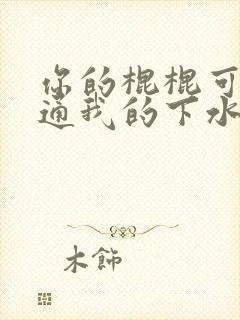 你的棍棍可
通我的下水
木飾